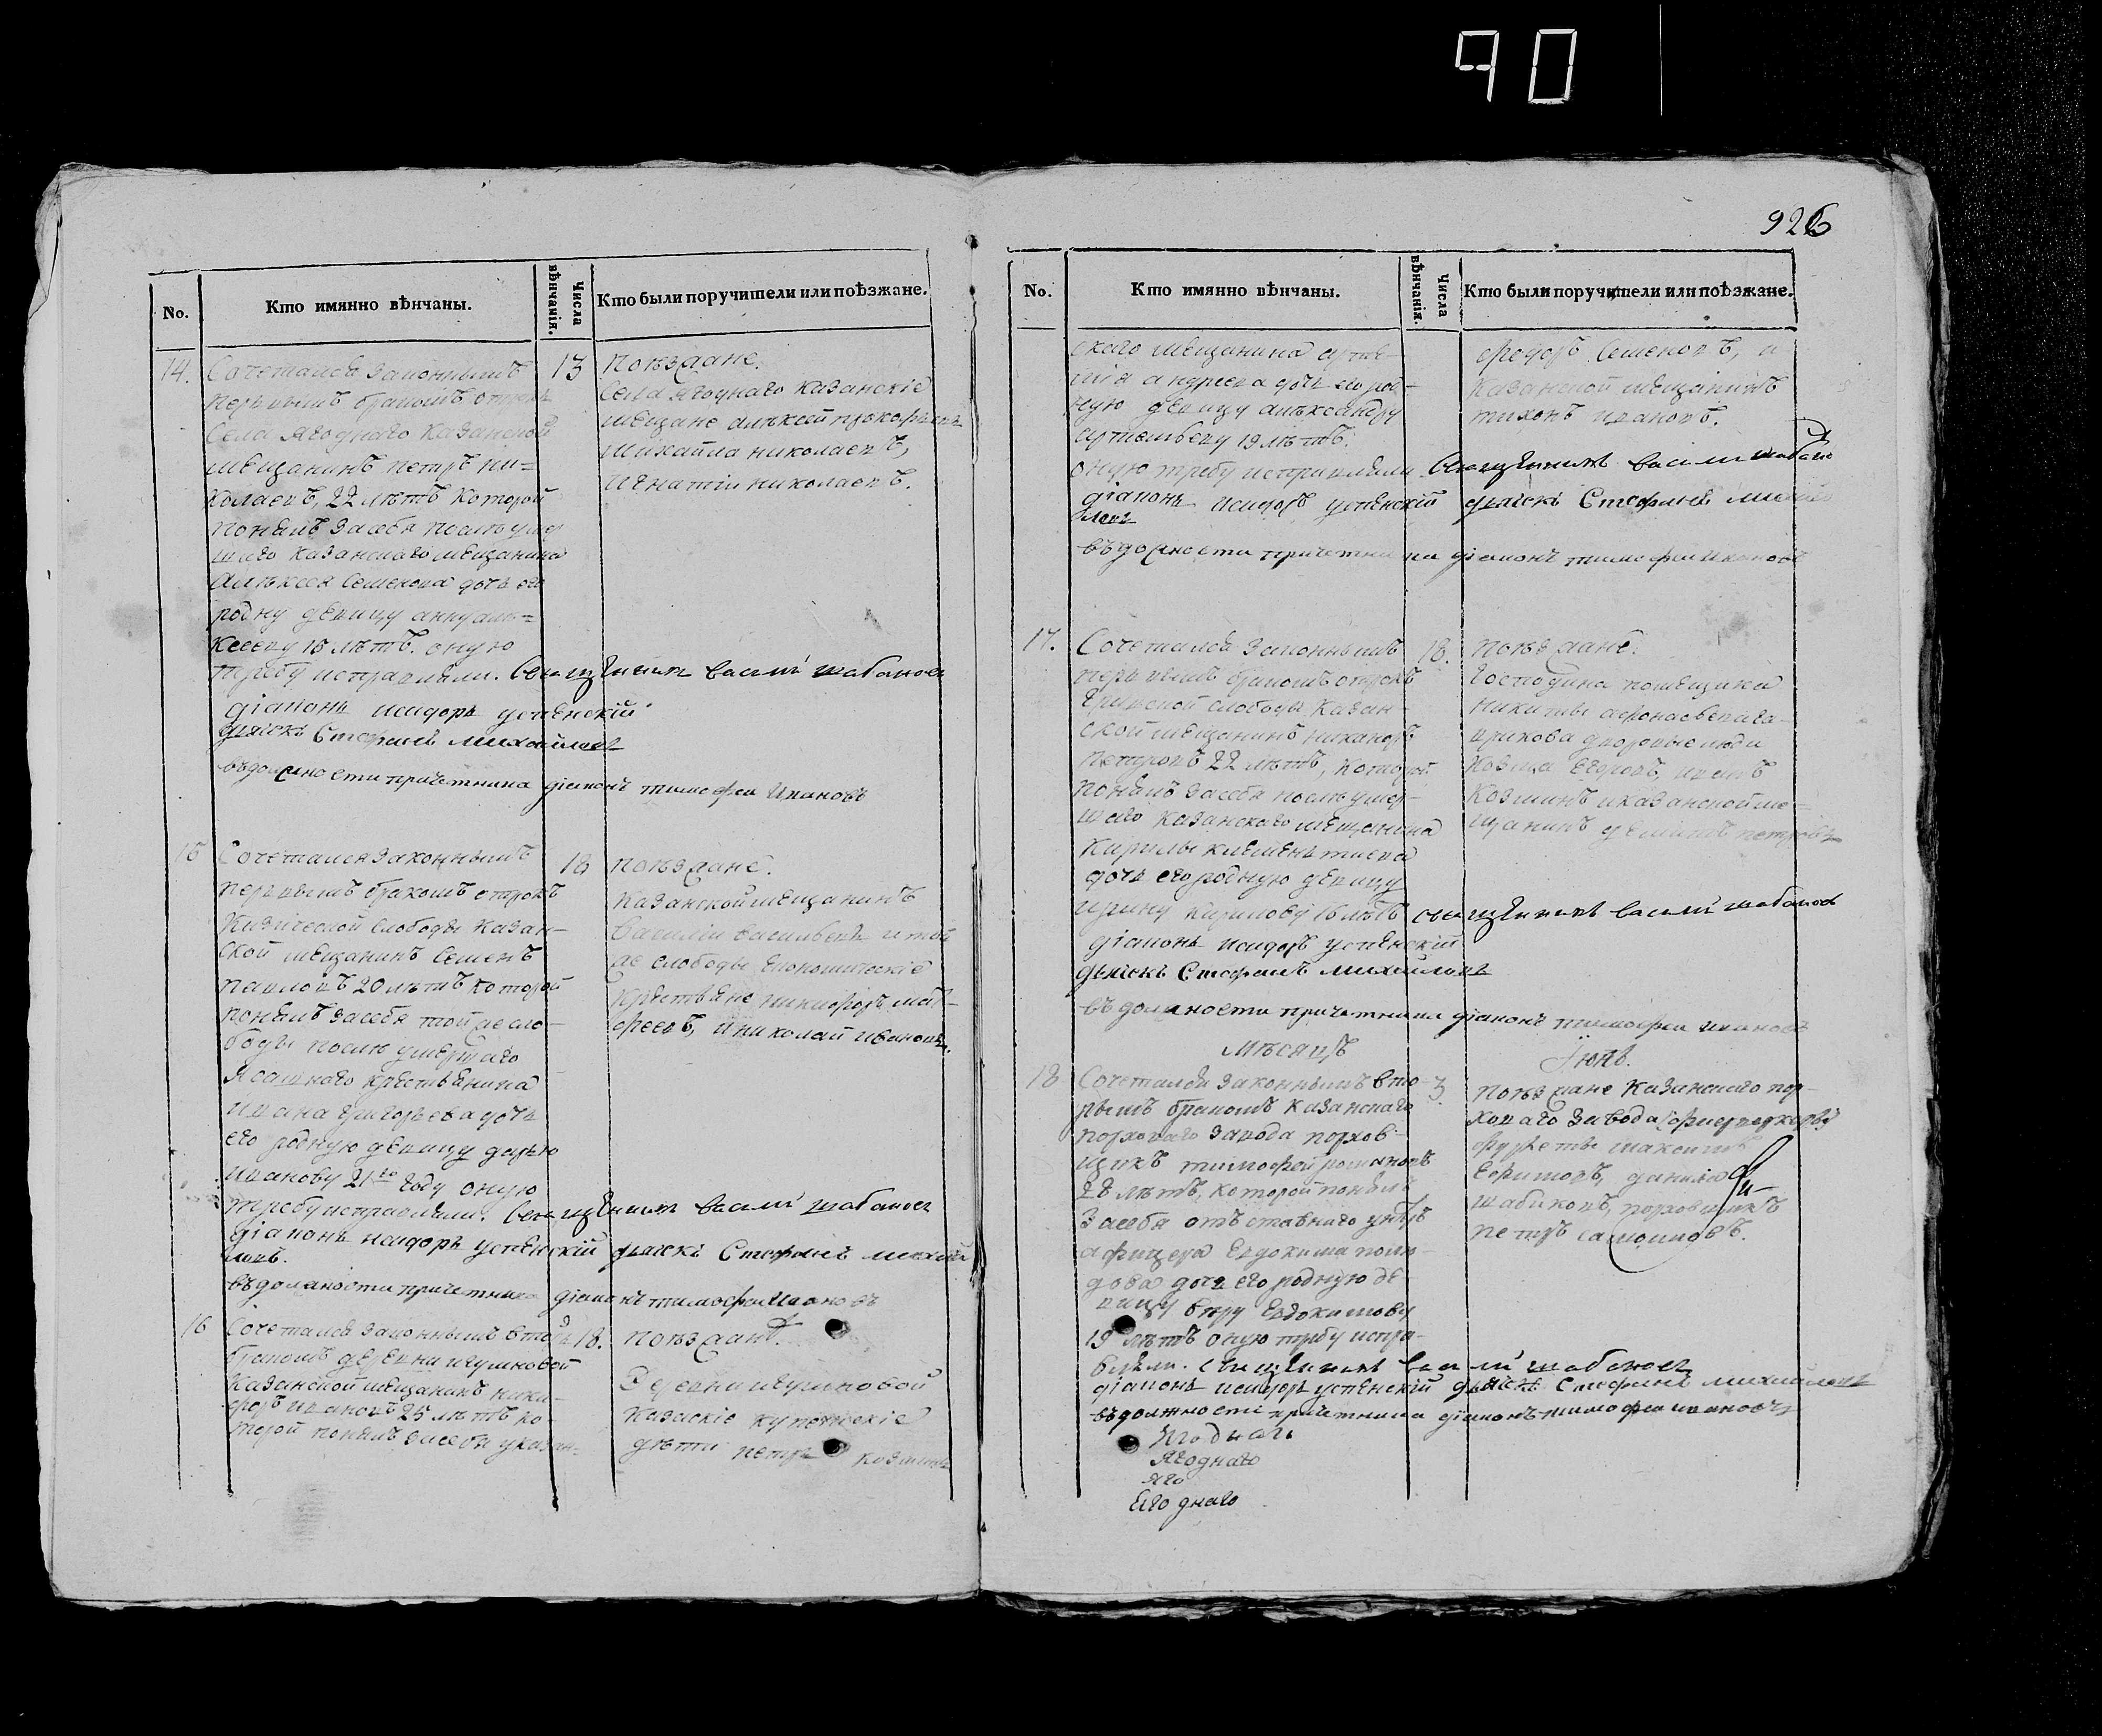 90
926
No.
Кто имянно вѣнчаны.
Числа вѣнчанія.
Кто были поручители или поѣзжане.
14.
Сочетался законнымъ
первымъ бракомъ отрокъ
Села Ягоднаго Казанской
мещанинъ петръ ни=
колаевъ, 22 лѣтъ которой
понялъ засебя послѣ умер
шаго казанскаго мещанина
Алѣксея Семенова дочь его
родну девицу анну алѣ=
ксееву 18 лѣтъ. оную
требу исправляли. Священникъ василий шабановъ
діаконъ исидоръ успенскій
дьячекъ Стефанъ михайловъ
въ должности причетника діаконъ тимофей Ивановъ
13
поѣзжане.
Села Ягоднаго казанскіе
мещане алѣксей прокофьевъ
михайла николаевъ,
игнатій николаевъ.
15
Сочетался законнымъ
первымъ бракомъ отрокъ
Кизической слободы казан-
ской мещанинъ Семенъ
павловъ 20 лѣтъ которой
понялъ засебя той же сло-
боды послѣ умершаго
Ясашнаго крестьянина
ивана григорьева дочь
его родную девицу дарью
иванову 21го году оную
требу исправляли. Священникъ василий шабановъ
діаконъ исидоръ успенскій дьячекъ Стефанъ михай
ловъ.
въ должности причетника діаконъ тимофей Ивановъ
18
поѣзжане.
Казанской мещанинъ
Василій васильевъ и той
же слободы Економическіе
крестьяне никифоръ мат-
феевъ, и николай ивановъ.
16
Сочетался законнымъ вторы
бракомъ деревни игумновой
Казанской мещанинъ ники-
форъ ивановъ 25 лѣтъ ко-
торой понялъ засебя казан-
18.
поѣзжане.
Деревни игумновой
казанскіе купеческіе
дѣти петръ козминъ
No.
Кто имянно вѣнчаны.
Числа вѣнчанія.
Кто были поручители или поѣзжане.
скаго мещанина арте-
мія андреева дочь его род-
ную девицу алѣксандру
артемьеву 19 лѣтъ.
оную требу исправляли Священникъ василий шабано
діаконъ исидоръ успенскій дьячекъ Стефанъ михай
ловъ
въ должности причетника діаконъ тимофей Ивановъ
федоръ Семеновъ, и
казанской мещанинъ
тихонъ ивановъ.
17.
Сочетался законнымъ
первымъ бракомъ отрокъ
слободы Казан-
ской мещанинъ никаноръ
петровъ 22 лѣтъ, которой
понялъ засебя послѣ умер-
шаго казанскаго мещанина
Кирилы клементиева
дочь его родную девицу
ирину кирилову 16 лѣтъ священникъ василий шабановъ
діаконъ исидоръ успенскій
дьячекъ Стефанъ михайловъ
въ должности причетника діаконъ тимофей ивановъ
18.
поѣзжане.
Господина помещика
никиты
дворовые люди
Козма Егоровъ, иванъ
Козминъ и казанской ме=
щанинъ петровъ
мѣсяцъ Іюнь.
18
Сочетался законнымъ вто-
рымъ бракомъ казанскаго
порховаго завода порхов-
щикъ тимофей романовъ
28 лѣтъ, которой понялъ
засебя отъставнаго унтеръ
афицера Евдокима
дочь его родную де-
вицу веру Евдокимову
19 лѣтъ оную требу испра-
вляли. священникъ василий шабановъ
діаконъ исидоръ успенскій дьячекъ Стефанъ михайловъ
въ должности причетника діаконъ тимофей ивановъ
3
поѣзжане казанскаго пор-
ховаго завода
максимъ
Ефимовъ, данила
порховщикъ
петръ самоиловъ.
Ягодная
Ягоднаго
Яго
Ягоднаго